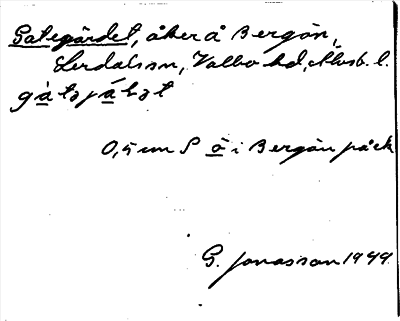 Gategärdet, åker å Bergön,
Lerdalssn, Valbo hd, Älvsb. l.
gàtəjáḷət
0,5 cm S ö i Bergön på ek
G. Jonasson 1949